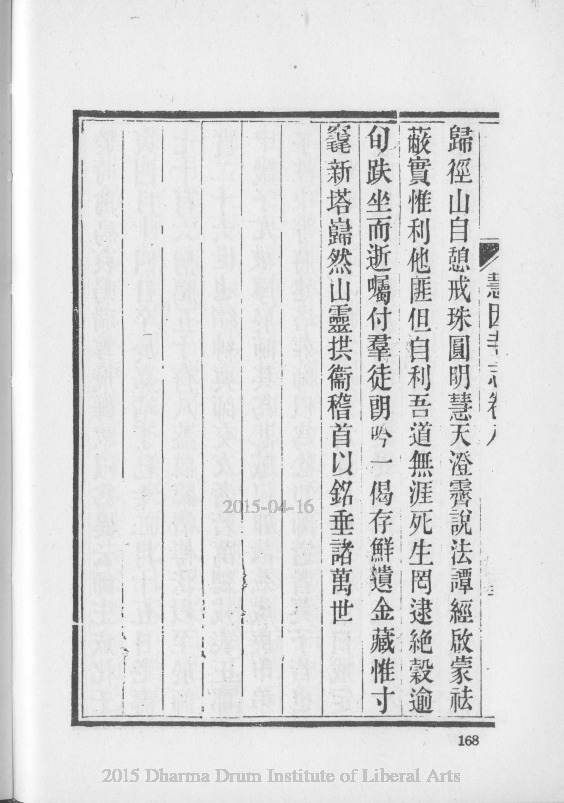 慧因寺志卷八
歸徑山自憩戒珠圓明慧天澄霽說法譚經啟蒙祛
蔽實惟利他匪但自利吾道無涯死生罔逮絶穀逾
旬趺坐而逝囑付羣徒朗吟一偈存鮮遺金藏惟寸
窀新塔巋然山靈拱衞稽首以銘垂諸萬世
168
2015-04-16
2015 Dharma Drum Institute of Liberal Arts